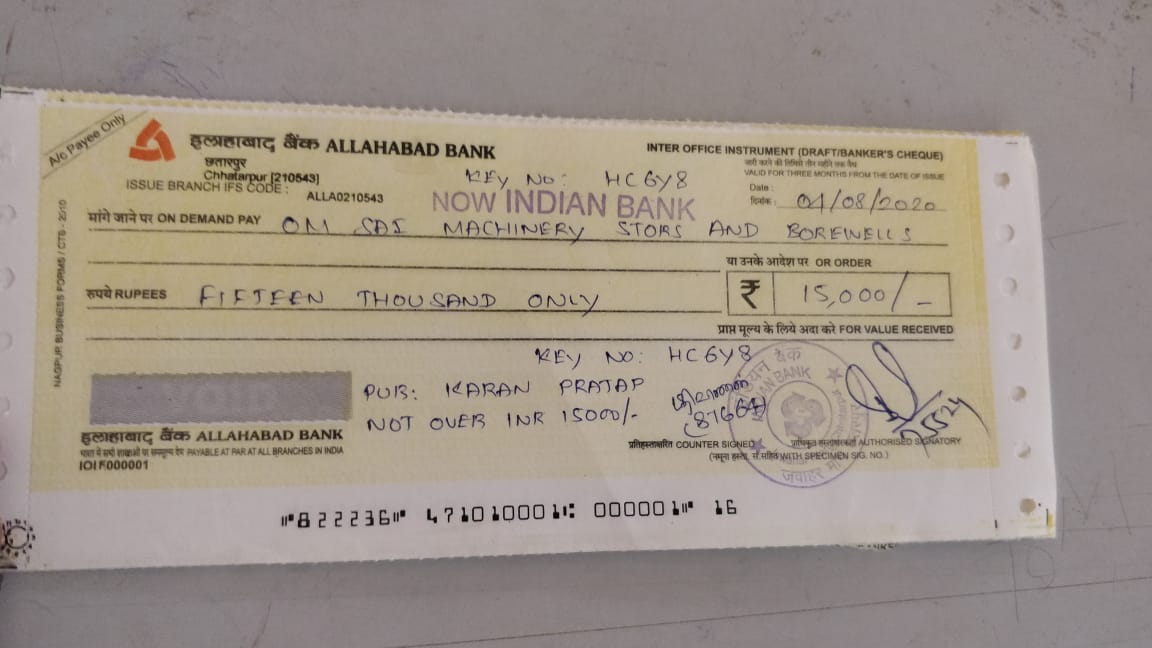 A/c Payee Only
इलाहाबाद बैंक ALLAHABAD BANK
छतारपुर
Chhatarpur [210543]
ISSUE BRANCH IFS CODE :
ALLA0210543
INTER OFFICE INSTRUMENT (DRAFT/BANKER'S CHEQUE)
जारी करने की तिथिसे तीन महीने तक वैध
VALID FOR THREE MONTHS FROM THE DATE OF ISSUE
KEY NO: HC6Y8
NOW INDIAN BANK
Date :
दिनांक : 04/08/2020
मांगे जाने पर ON DEMAND PAY OM SAI MACHINERY STORS AND BOREWELLS
या उनके आदेश पर OR ORDER
रुपये RUPEES FIFTEEN THOUSAND ONLY
₹ 15,000/-
प्राप्त मूल्य के लिये अदा करे FOR VALUE RECEIVED
KEY NO: HC6Y8
PUR: KARAN PRATAP
NOT OVER INR 15000/-
VOID
इलाहाबाद बैंक ALLAHABAD BANK
भारत में सभी शाखाओं पर सममूल्य देय PAYABLE AT PAR AT ALL BRANCHES IN INDIA
IOIF000001
INDIAN BANK
प्रतिहस्ताक्षरित COUNTER SIGNED
प्राधिकृत हस्ताक्षरकर्ता AUTHORISED SIGNATORY
(नमूना हस्ता. सं.सहित WITH SPECIMEN SIG. NO.)
NAGPUR BUSINESS FORMS / CTS - 2010
⑈822236⑈ 471010001⑆ 000001⑈ 16